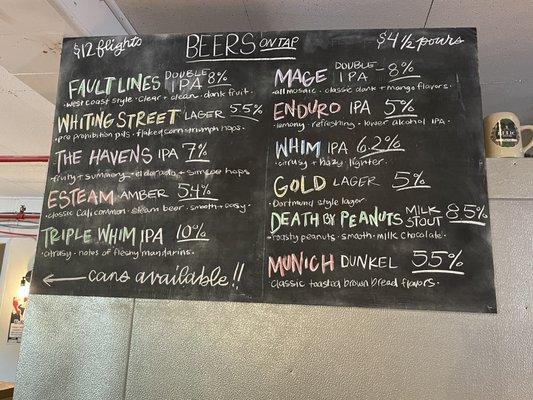 $12 flights
BEERS ON TAP
$4 1/2 pours
FAULT LINES DOUBLE IPA 8%
west coast style · clear + clean · dank fruit
WHITING STREET LAGER 5.5%
pre prohibition pils · flaked corn · triumph hops.
THE HAVENS IPA 7%
fruity + summary · eldorado + simcoe hops
ESTEAM AMBER 5.4%
classic Cali common · steam beer · smooth + easy.
TRIPLE WHIM IPA 10%
citrusy · notes of fleshy mandarins.
← cans available!!
MAGE DOUBLE IPA 8%
all mosaic · classic dank + mango flavors.
ENDURO IPA 5%
lemony · refreshing + lower alcohol IPA.
WHIM IPA 6.2%
citrusy + hazy · lighter.
GOLD LAGER 5%
Dortmund style lager
DEATH BY PEANUTS MILK STOUT 8.5%
roasty peanuts · smooth · milk chocolate.
MUNICH DUNKEL 5.5%
classic toasted brown bread flavors.